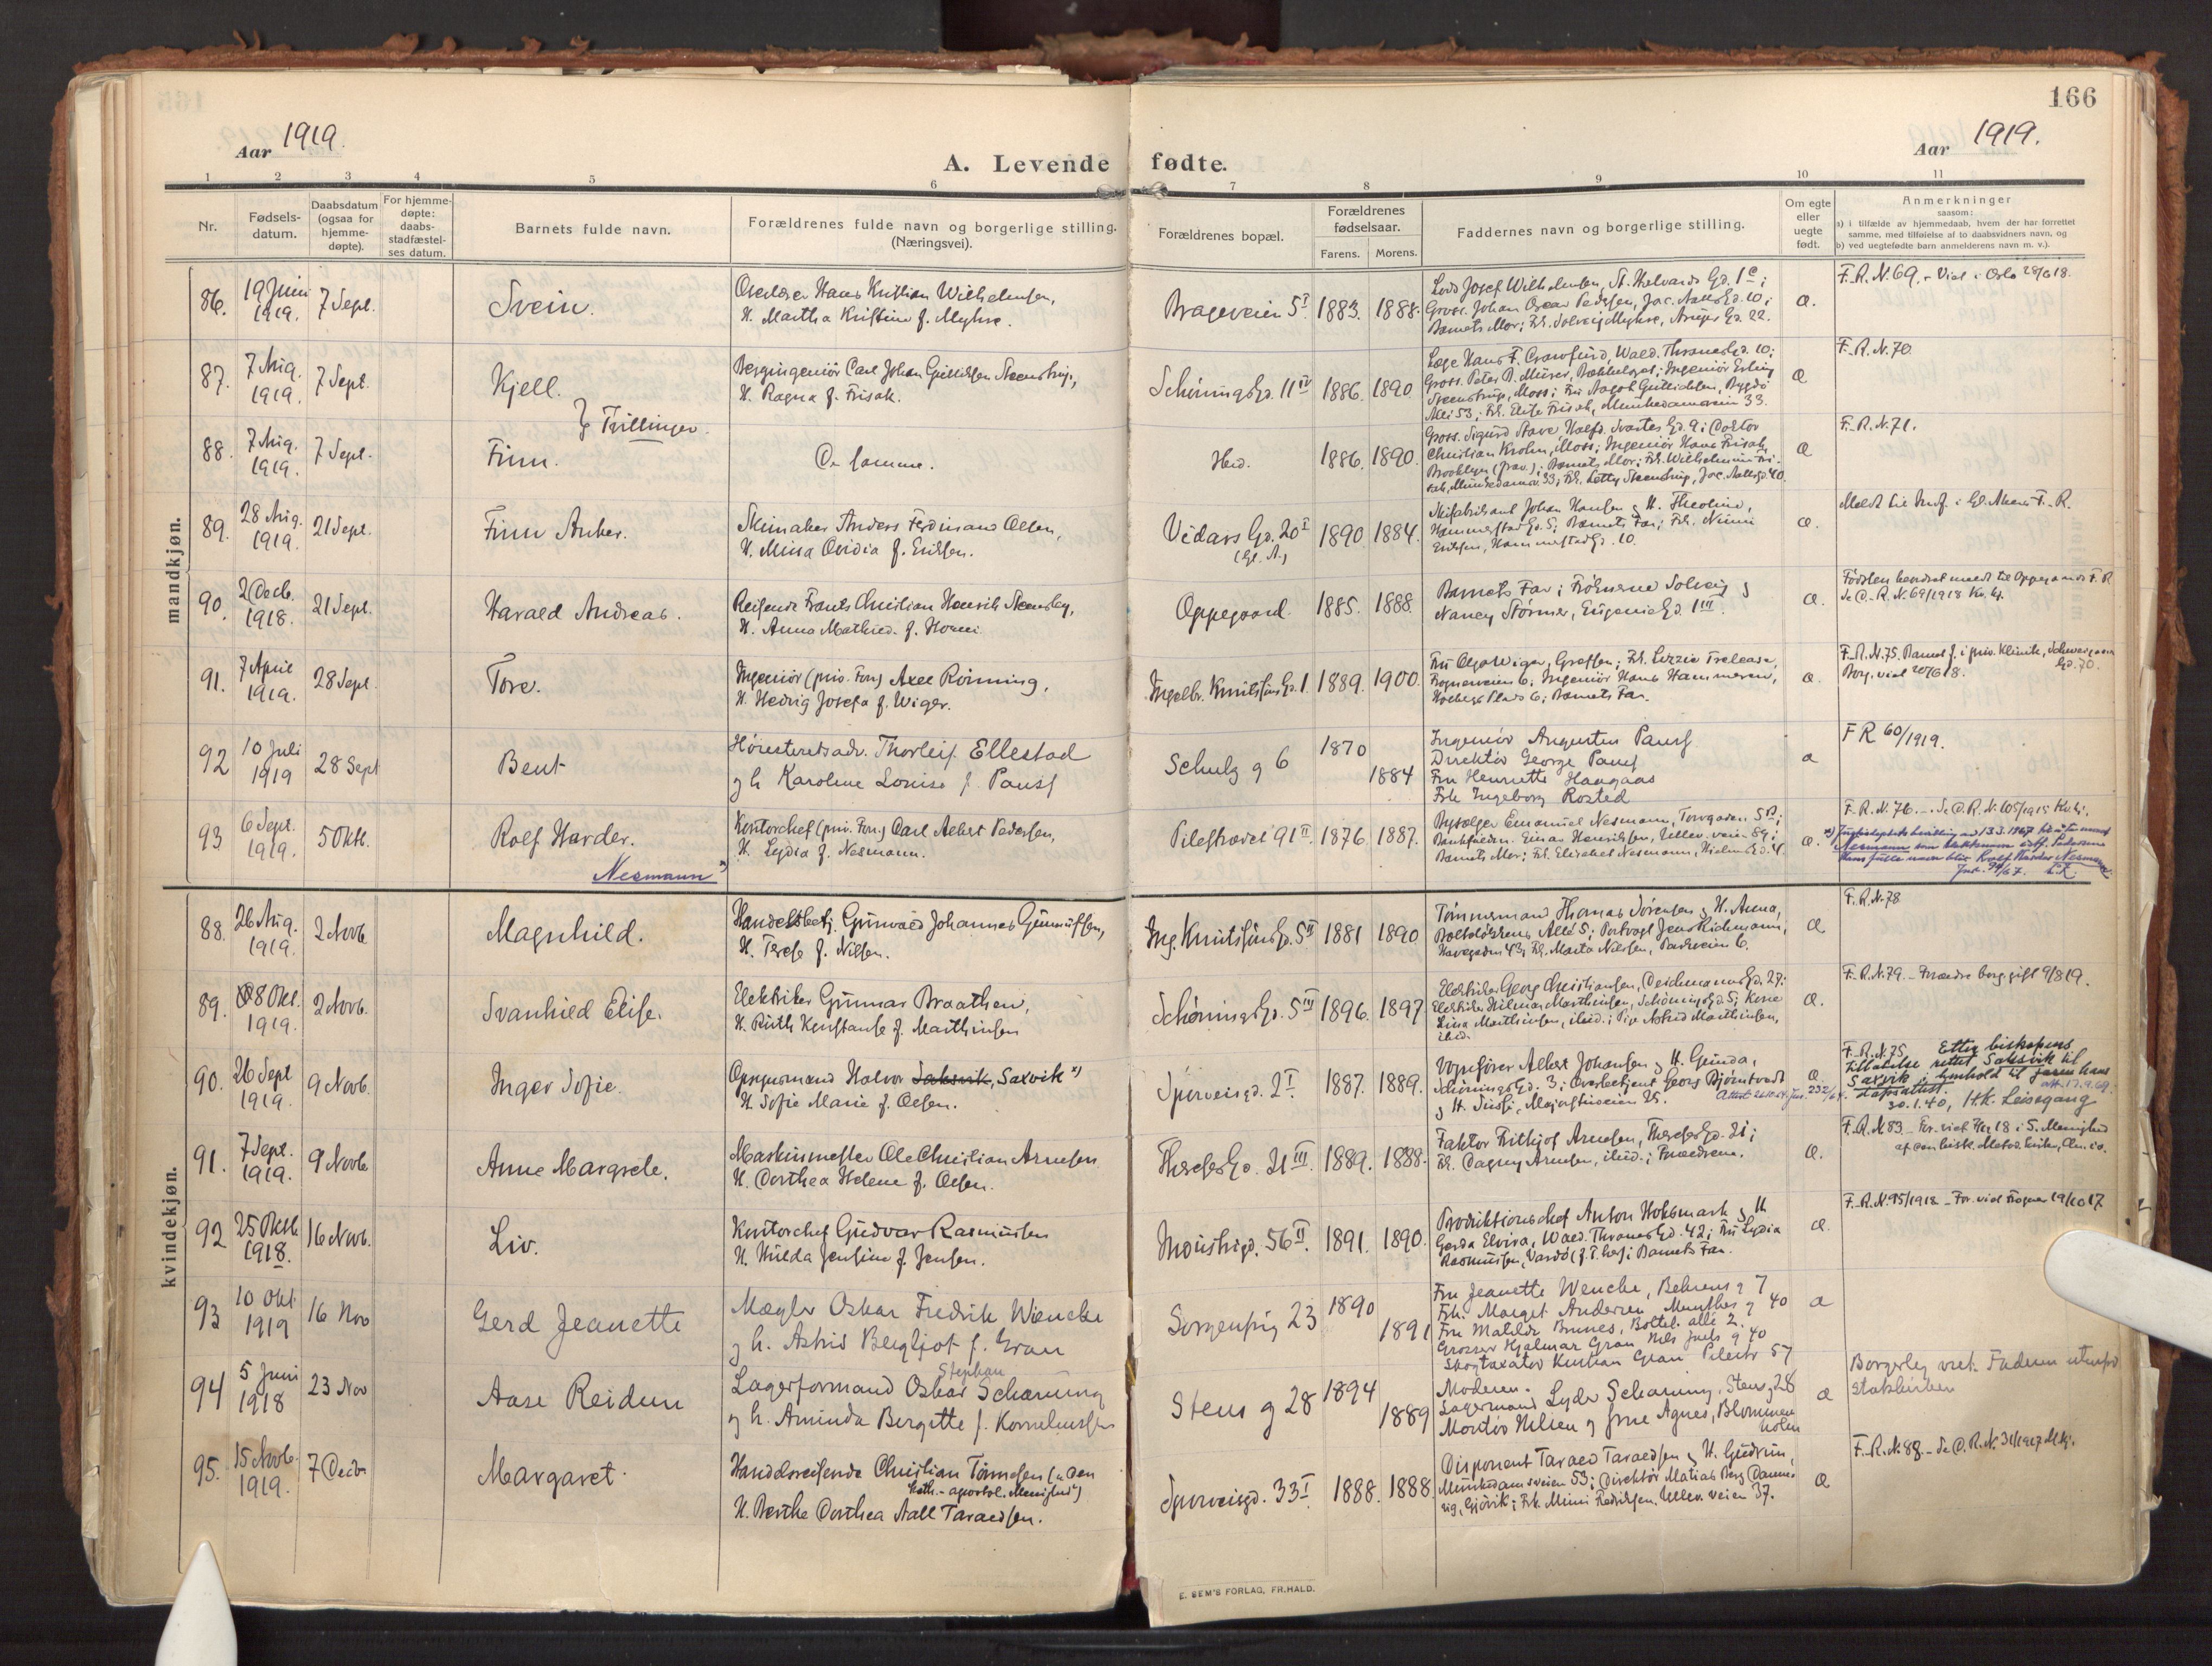 166
Aar 1919.
Aar 1919.
A. Levende fødte.
1 2 3 4 5 6 7 8 9 10 11
Nr.
Fødsels-
datum.
Daabsdatum
(ogsaa for
hjemme-
døpte).
For hjemme-
døpte:
daabs-
stadfæstel-
ses datum.
Barnets fulde navn.
Forældrenes fulde navn og borgerlige stilling.
(Næringsvei).
Forældrenes bopæl.
Forældrenes
fødselsaar.
Farens. Morens.
Faddernes navn og borgerlige stilling.
Om egte
eller
uegte
født.
Anmerkninger
saasom:
a) i tilfælde av hjemmedaab, hvem der har forrettet
samme, med tilføielse af to daabsvidners navn, og
b) ved uegtefødte barn anmelderens navn m. v.).
mandkjøn.
86. 19 Juni 1919. 7 Sept. Svein.
Hans Kristian Wilhelmsen,
H. Martha Kristine f. Myhre.
Brageveien 5 I 1883. 1888.
Josef Wilhelmsen, St. Halvards Gd. 1 c;
Gross. Johan Oscar Pedersen, Jac. Aalls Gd. 10;
Barnets Mor; Frk. Solveig Myhre, Gd. 22.
Æ.
F.R.N. 69. - Viet i Oslo 28/6 18.
87. 7 Aug. 1919. 7 Sept. Kjell.
} Tvillinger.
Bergingeniör Carl Johan Gullichsen Steenstrup,
H. Ragna f. Frisak.
Schøningsgd. 11 IV 1886. 1890
Læge Hans F. Crawfurd, Wald. Thranes Gd. 10;
Gross. Peter B. Bækkelaget; Ingeniör Erling
Steenstrup, Moss; Fru Aagot Gullichsen, Bygdö
Allé 53; Frk. Elise Frisak, Munkedamsveien 33.
Æ
F.R.N. 70
88. 7 Aug. 1919. 7 Sept. Finn.
De samme.
Ibid. 1886. 1890.
Gross. Sigurd Halfd. Svartes Gd. 9; Doktor
Christian Krohn, Moss; Ingeniör Hans Frisak,
Brooklyn; Barnets Mor; Frk. Wilhelmine Fri-
sak, Munkedamsv. 33; Frk. Letty Steenstrup, Jac. Aallsgd. 40.
Æ
F.R.N. 71.
89. 28 Aug. 1919. 21 Sept. Finn Anker.
Skimaker Anders Ferdinand Olsen,
H. Mina Ovidia f. Eriksen.
Vidars Gd. 20 I
(Gl. A.)
1890 1884.
Skifabrikant Johan Hansen & H. Theoline,
Hammerstad Gd. 5; Barnets Far; Frk. Nunni
Eriksen, Hammerstad Gd. 10.
Æ.
Meldt til Indf. i Gl. Akers F.R.
90. 2 Decb. 1918. 21 Sept. Harald Andreas.
Reisende Frants Christian Henrik Steensby,
H. Anna Mathild. f. Horni.
Oppegaard. 1885. 1888.
Barnets Far; Frøknerne Solveig &
Nancy Størmer, Eugenie Gd. 1 III.
Æ.
Fødslen meldt til Oppegaards F.R.
Se D.R. N. 69/1918 Kv. kj.
91. 7 April 1919. 28 Sept. Tore.
Ingeniör (priv. Forr.) Axel Rönning,
H. Hedvig Josefa f. Wiger.
Ingelbr. Knutssøns Gd. 1 1889. 1900.
Fru Olga Wiger, Grefsen; Frk. Lizzie Trelease,
Frognerveien 6; Ingeniör Hans Hammeren,
Holbergs Plads 6; Barnets Far.
Æ.
F.R.N. 75. Barnet f. i priv. Klinik, Schwensens
Gd. 70.
Borg. viet 20/6 18.
92 10 Juli 1919 28 Sept Bent
Höiesteretsadv. Thorleif Ellestad
og h Karoline Louise f. Pauss
Schulz g 6 1870 1884
Ingeniør Augustin Pauss
Direktör George Pauss
Fru Henriette Haagaas
Frk Ingeborg Rosted
Æ
F R 60/1919.
93 6 Sept. 1919. 5 Oktb. Rolf Harder.
Nesmann x)
Kontorchef (priv. Forr.) Carl Albert Pedersen,
H. Lydia f. Nesmann.
Pilestrædet 91 II 1876. 1887.
Emanuel Nesmann, Torvgaden 5 B;
Einar Henriksen, Ullev. veien 89;
Barnets Mor; Frk. Elisabet Nesmann, Hjelms Gd. 4.
Æ.
F.R.N. 76. - Se D.R. N. 105/1915 Kv. kj.
x) Justisdeptets bevilling av 13.3.1967 til å ta navnet
Nesmann som slektsnavn istf. Pedersen.
Hans fulle navn blir Rolf Harder Nesmann
kvindekjøn.
88. 26 Aug. 1919. 2 Novb. Magnhild.
Handelsbetj. Gunvald Johannes Gunnufsen,
H. Terese f. Nilsen.
Ing. Knutssøns Gd. 5 II 1881 1890
Tømmermand Thomas Sörensen & H. Anna,
Bolteløkkens Allé 5; Portvagt Jens Kidemann,
Havegaden 43; Frk. Marta Nilsen, Parkveien 6.
Æ
F.R.N. 78
89. 8 Okt. 1919. 2 Novb. Svanhild Elise.
Elektriker Gunnar Braathen,
H. Ruth Konstanse f. Marthinsen
Schøningsgd. 5 III 1896. 1897
Elektriker Georg Christiansen, Deichmans Gd. 27;
Elektriker Hilmar Marthinsen, Schönings Gd. 5; Kone
Lina Marthinsen, ibid.; Pige Astrid Marthinsen,
ibid.
Æ.
F.R.N. 79. - Forældre borg. gift 9/8 19.
90. 26 Sept 1919. 9 Novb. Inger Sofie.
Opsynsmand Halvor Saksvik, Saxvik x)
H. Sofie Marie f. Olsen.
Sporveisgd. 2 I 1887. 1889.
Vognfører Albert Johansen & H. Gunda,
Schönings Gd. 3; Overbetjent Georg Bjørntvedt
& H. Sussi, Majorstuveien 25.
Æ.
F.R.N. 75 Etter biskopens
tillatelse rettet Saksvik til
Saxvik i henhold til hans
dåpsattest
30.1.40, H.K. Leisegang
91. 7 Sept. 1919. 9 Novb. Anne Margrete.
Maskinmester Ole Christian Arnesen
H. Dorthea Helene f. Olsen.
Theresesgd. 21 III. 1889. 1888.
Faktor Frithjof Arnesen, Thereses Gd. 21;
Frk. Dagny Arnesen, ibid.; Forældrene.
Æ.
F.R.N. 83 - For. viet 18 i 5. Menighed
92 25 Oktb. 1918. 16 Novb. Liv.
Kontorchef Gudvar Rasmussen
H. Hulda Jensine f. Jensen.
Industrigd. 56 II. 1891. 1890.
Produktionschef Anton Hoksmark & H
Gerda Elvira, Wald. Thranes Gd. 42; Fru Lydia
Rasmussen, Vardö; Barnets Far.
Æ.
F.R.N. 95/1918. - For. viet Frogner 19/10 17
93 10 Okt 1919 16 Nov Gerd Jeanette
Mægler Oskar Fredrik Wencke
og h. Astrid Bergljot f. Gran
Sorgenfrig 23 1890 1891
Fru Jeanette Wencke, Behrens g 7
Frk. Marget Andersen Munthes g 40
Fru Matilde Brunes, Boltel. allé 2.
Grosser Hjalmar Gran Nils Juels g 40
Skogtaxator Kristian Gran Pilestr 57
Æ
94 5 Juni 1918 23 Nov Aase Reidun
Stephan
Lagerformand Oskar Scharning
og h. Aminda Bergitte f. Korneliussen
Stens g 28 1894 1889
Moderen.
Lagermand Lyder Scharning, Stensg 28
Nilsen og frue Agnes, Blommen
holm
Æ
Borgerlig viet. Faderen utmeldt
Statskirken
95. 15 Novb. 1919. 7 Decbr Margaret.
Handelsreisende Christian Tönnesen („Den
kath.-apostol. Menighed")
H. Berthe Dorthea Aall Taraldsen.
Sporveisgd. 33 I 1888. 1888
Disponent Tarald Taraldsen & H. Gudrun,
Munkedamsveien 53; Direktör Matias Berg Danne-
vig, Gjövik; Frk. Mimi Fredriksen, Ullev. veien 37.
Æ
F.R.N. 88. - Se D.R. N. 31/1917 M. kj.
E. SEM'S FORLAG, FR.HALD.